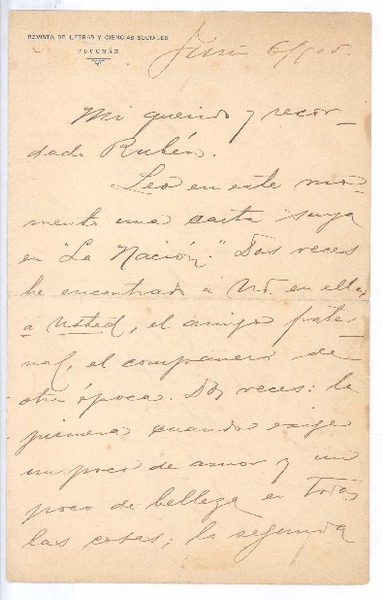 REVISTA DE LETRAS Y CIENCIAS SOCIALES
TUCUMÁN
Junio 6/905.
Mi querido y recor-
dado Rubén.
Leo en este mo-
mento una carta suya
en "La Nación." Dos veces
he encontrado a Vd en ella,
a usted, el amigo frater-
nal, el compañero de
otra época. Dos veces: la
primera cuando exige
un poco de amor y un
poco de belleza en todas
las cosas; la segunda